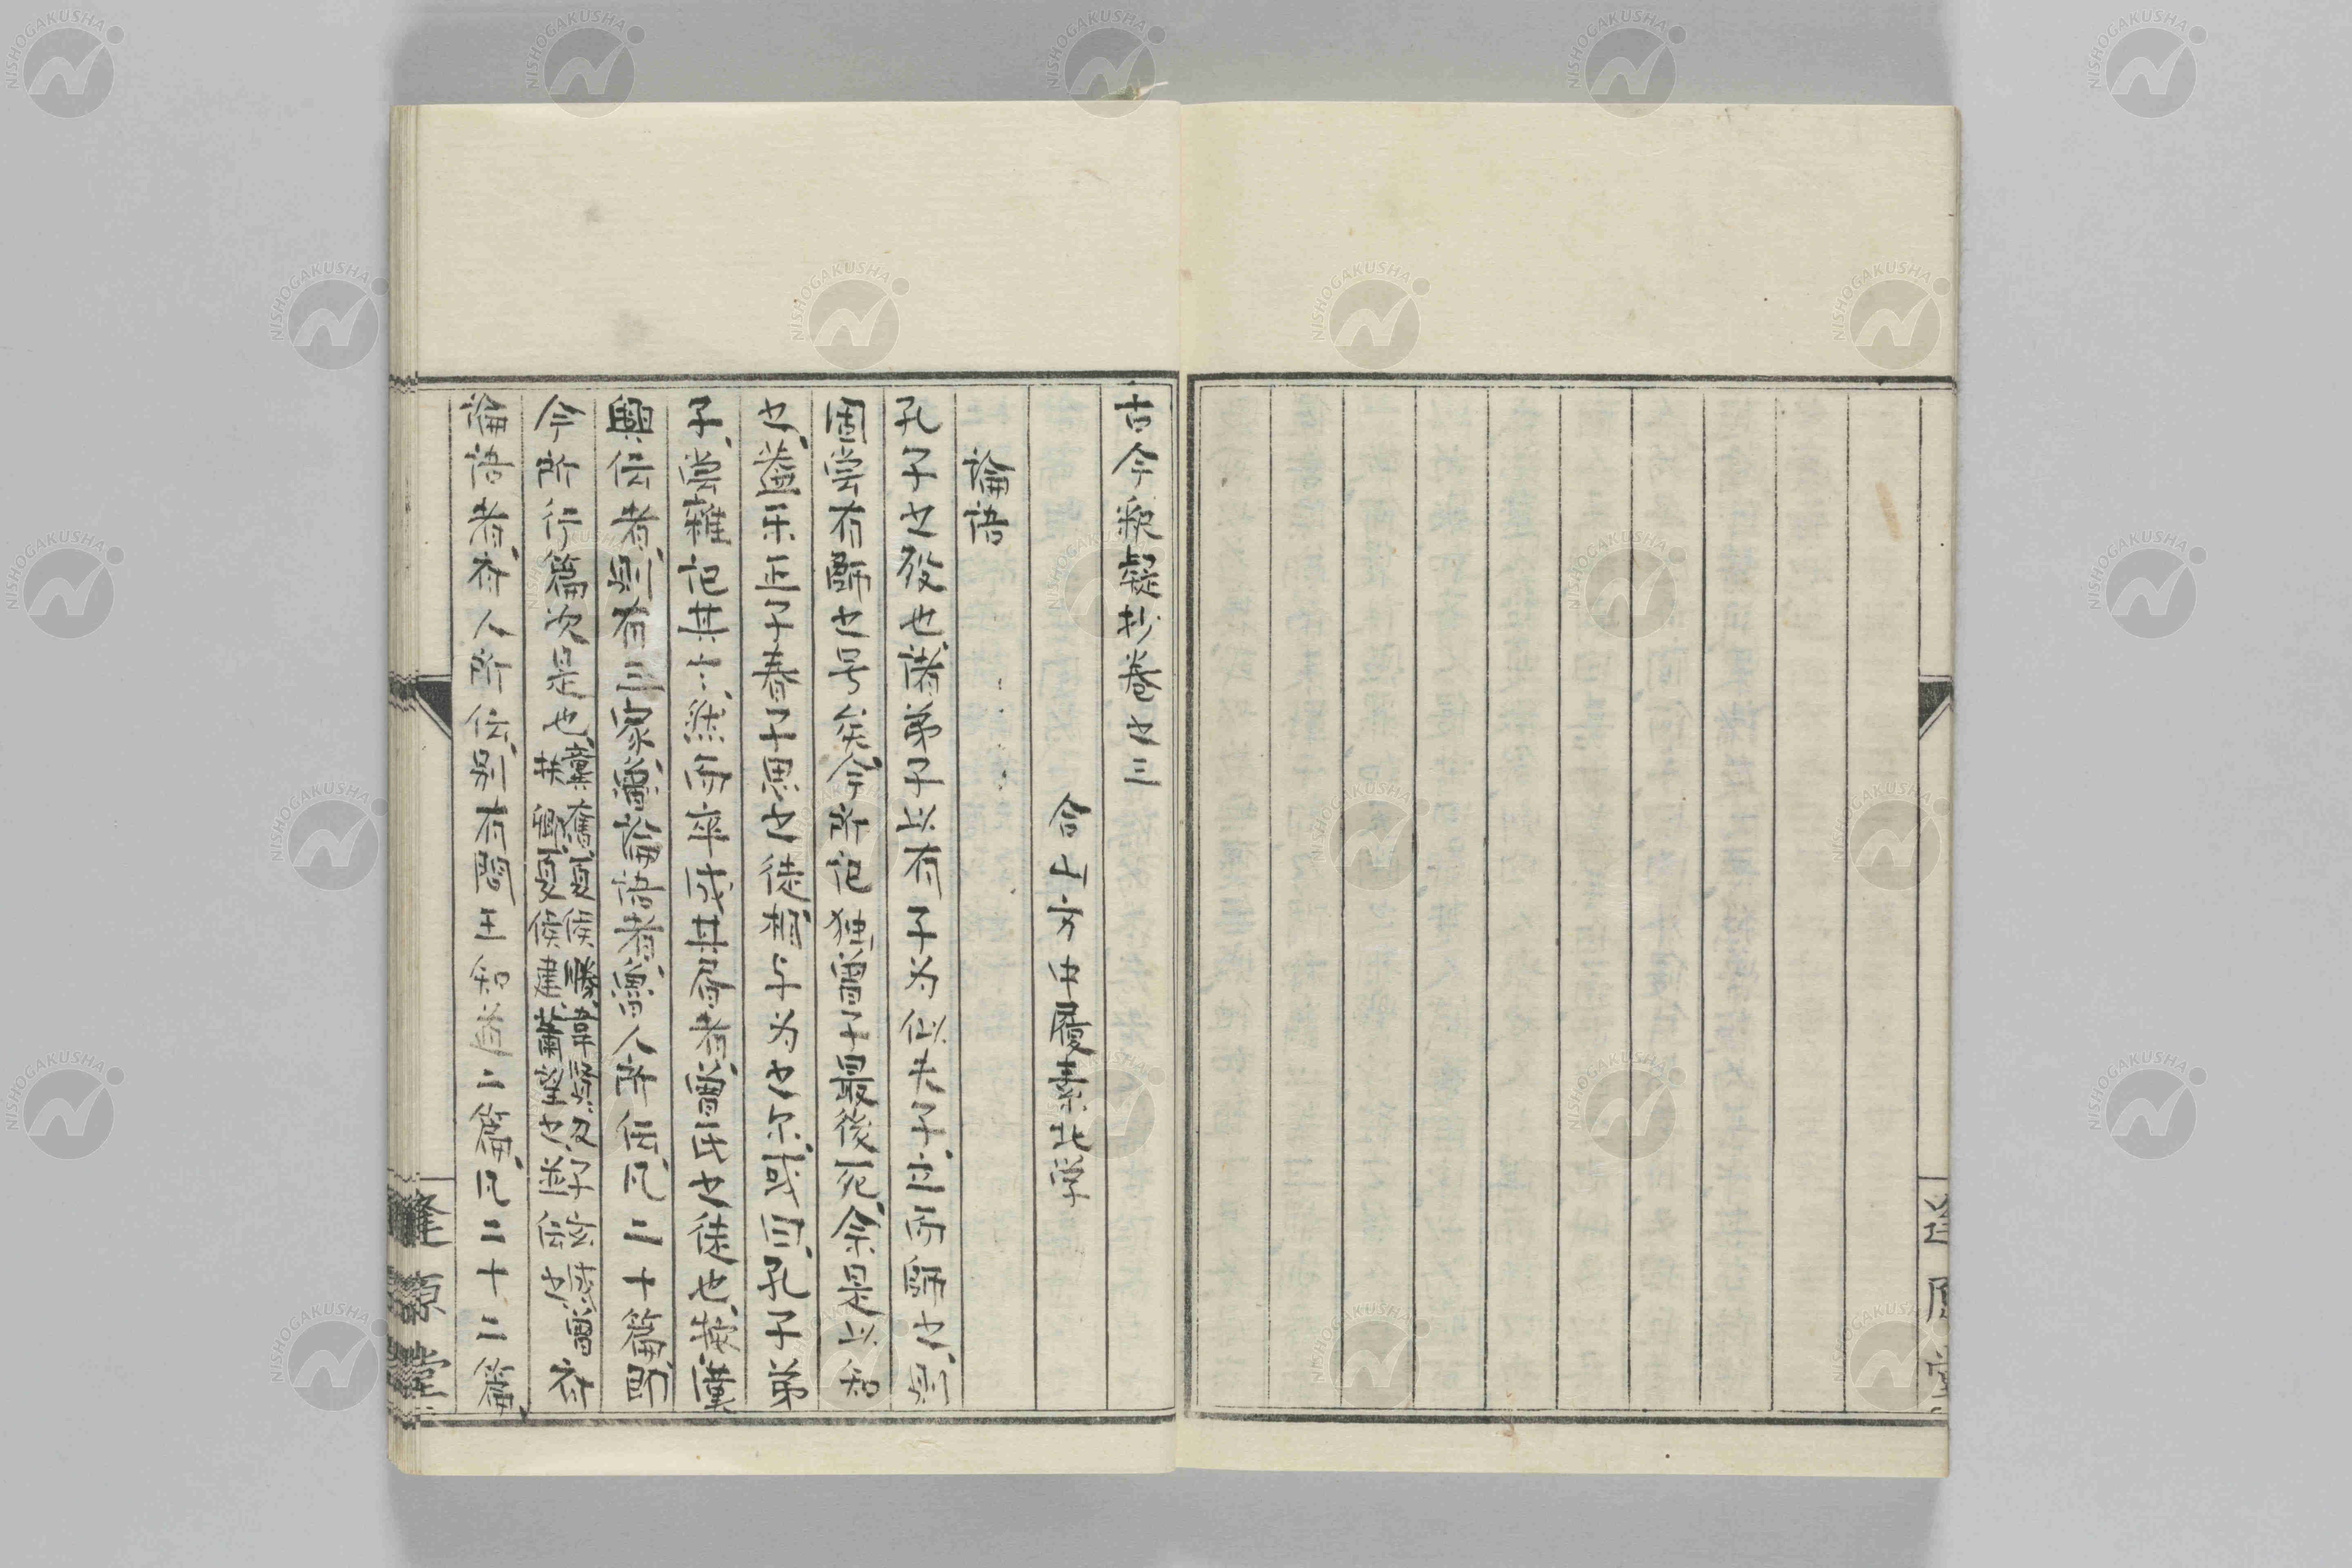 古今釈疑抄巻之三
合山文中履素北学
論語
孔子之歿也诸弟子以有子为似夫子立而師之则
固尝有師之号矣今所记独曾子最後死余是以知
之盖乐正子春子思之徒相与为之尔或曰孔子弟
子尝雜记其言然而卒成其书者曾氏之徒也按漢
興伝者则有三家魯論语者魯人所伝凡二十篇即
今所行篇次是也龔奮夏侯勝韋賢及子玄成魯
扶卿夏侯建蕭望之並伝之齐
論语者齐人所伝别有問王知道二篇凡二十二篇
隆原堂
NISHOGAKUSHA